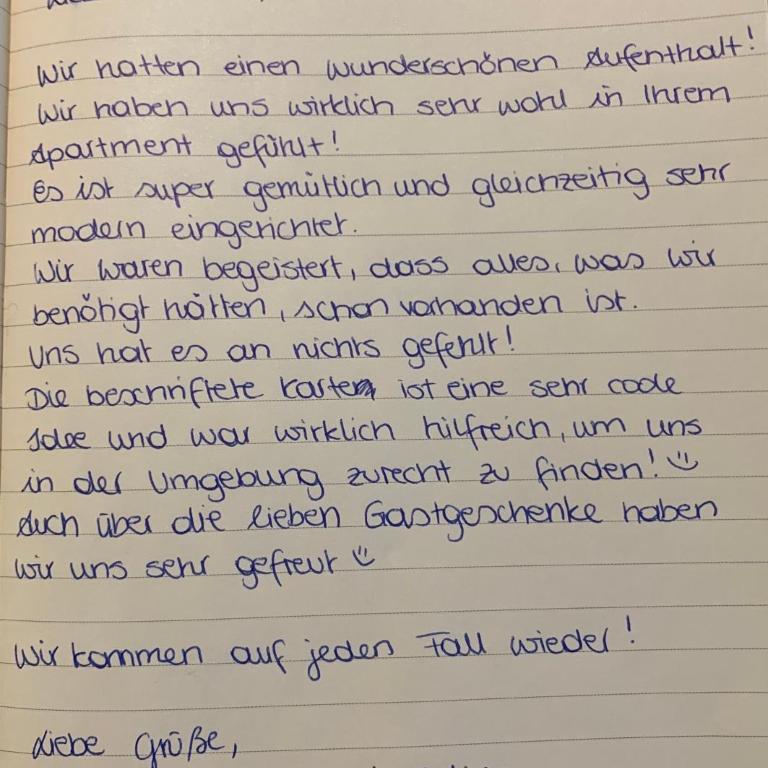 Wir hatten einen wunderschönen Aufenthalt!
Wir haben uns wirklich sehr wohl in Ihrem
Apartment gefühlt!
Es ist super gemütlich und gleichzeitig sehr
modern eingerichtet.
Wir waren begeistert, dass alles, was wir
benötigt hätten, schon vorhanden ist.
Uns hat es an nichts gefehlt!
Die beschriftete Karte ist eine sehr coole
Idee und war wirklich hilfreich, um uns
in der Umgebung zurecht zu finden! ☺
Auch über die lieben Gastgeschenke haben
wir uns sehr gefreut ☺
Wir kommen auf jeden Fall wieder!
Liebe Grüße,